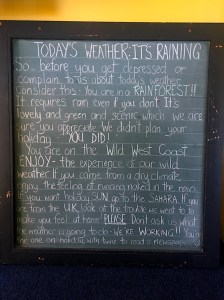 TODAY'S WEATHER: IT'S RAINING
So.. before you get depressed or
complain, to us about today's weather,
consider this: You are in a RAINFOREST!!
It requires rain even if you don't. It's
lovely and green and scenic which we are
sure you appreciate. We didn't plan your
holiday. YOU DID!
You are on the Wild West Coast
ENJOY the experience of our wild
weather. If you came from a dry climate
enjoy the feeling of running naked in the rain.
If you want holiday SUN go to the SAHARA. If you
are from the U.K. look at the trouble we went to to
make you feel at home! PLEASE Don't ask us what
the weather is going to do - WE'RE WORKING!! You're
the one on holiday with time to read a newspaper